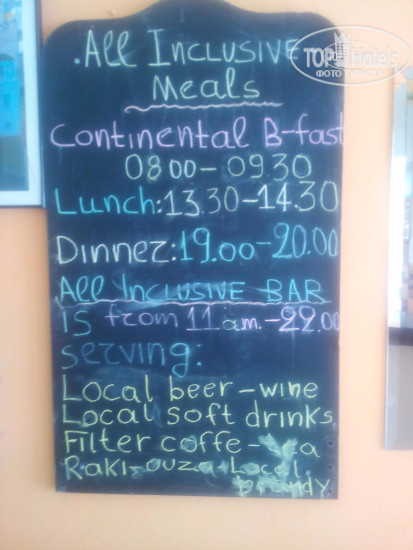 .All Inclusive
Meals
Continental B-fast
08 00 - 09.30
Lunch: 13.30-14.30
Dinner: 19.00-20.00
All Inclusive BAR
is from 11 am.-22.00
serving:
Local beer-wine
Local soft drinks
Filter coffe-
Raki-ouza-Local
brandy
TopHotels
ФОТО ТУРИСТА